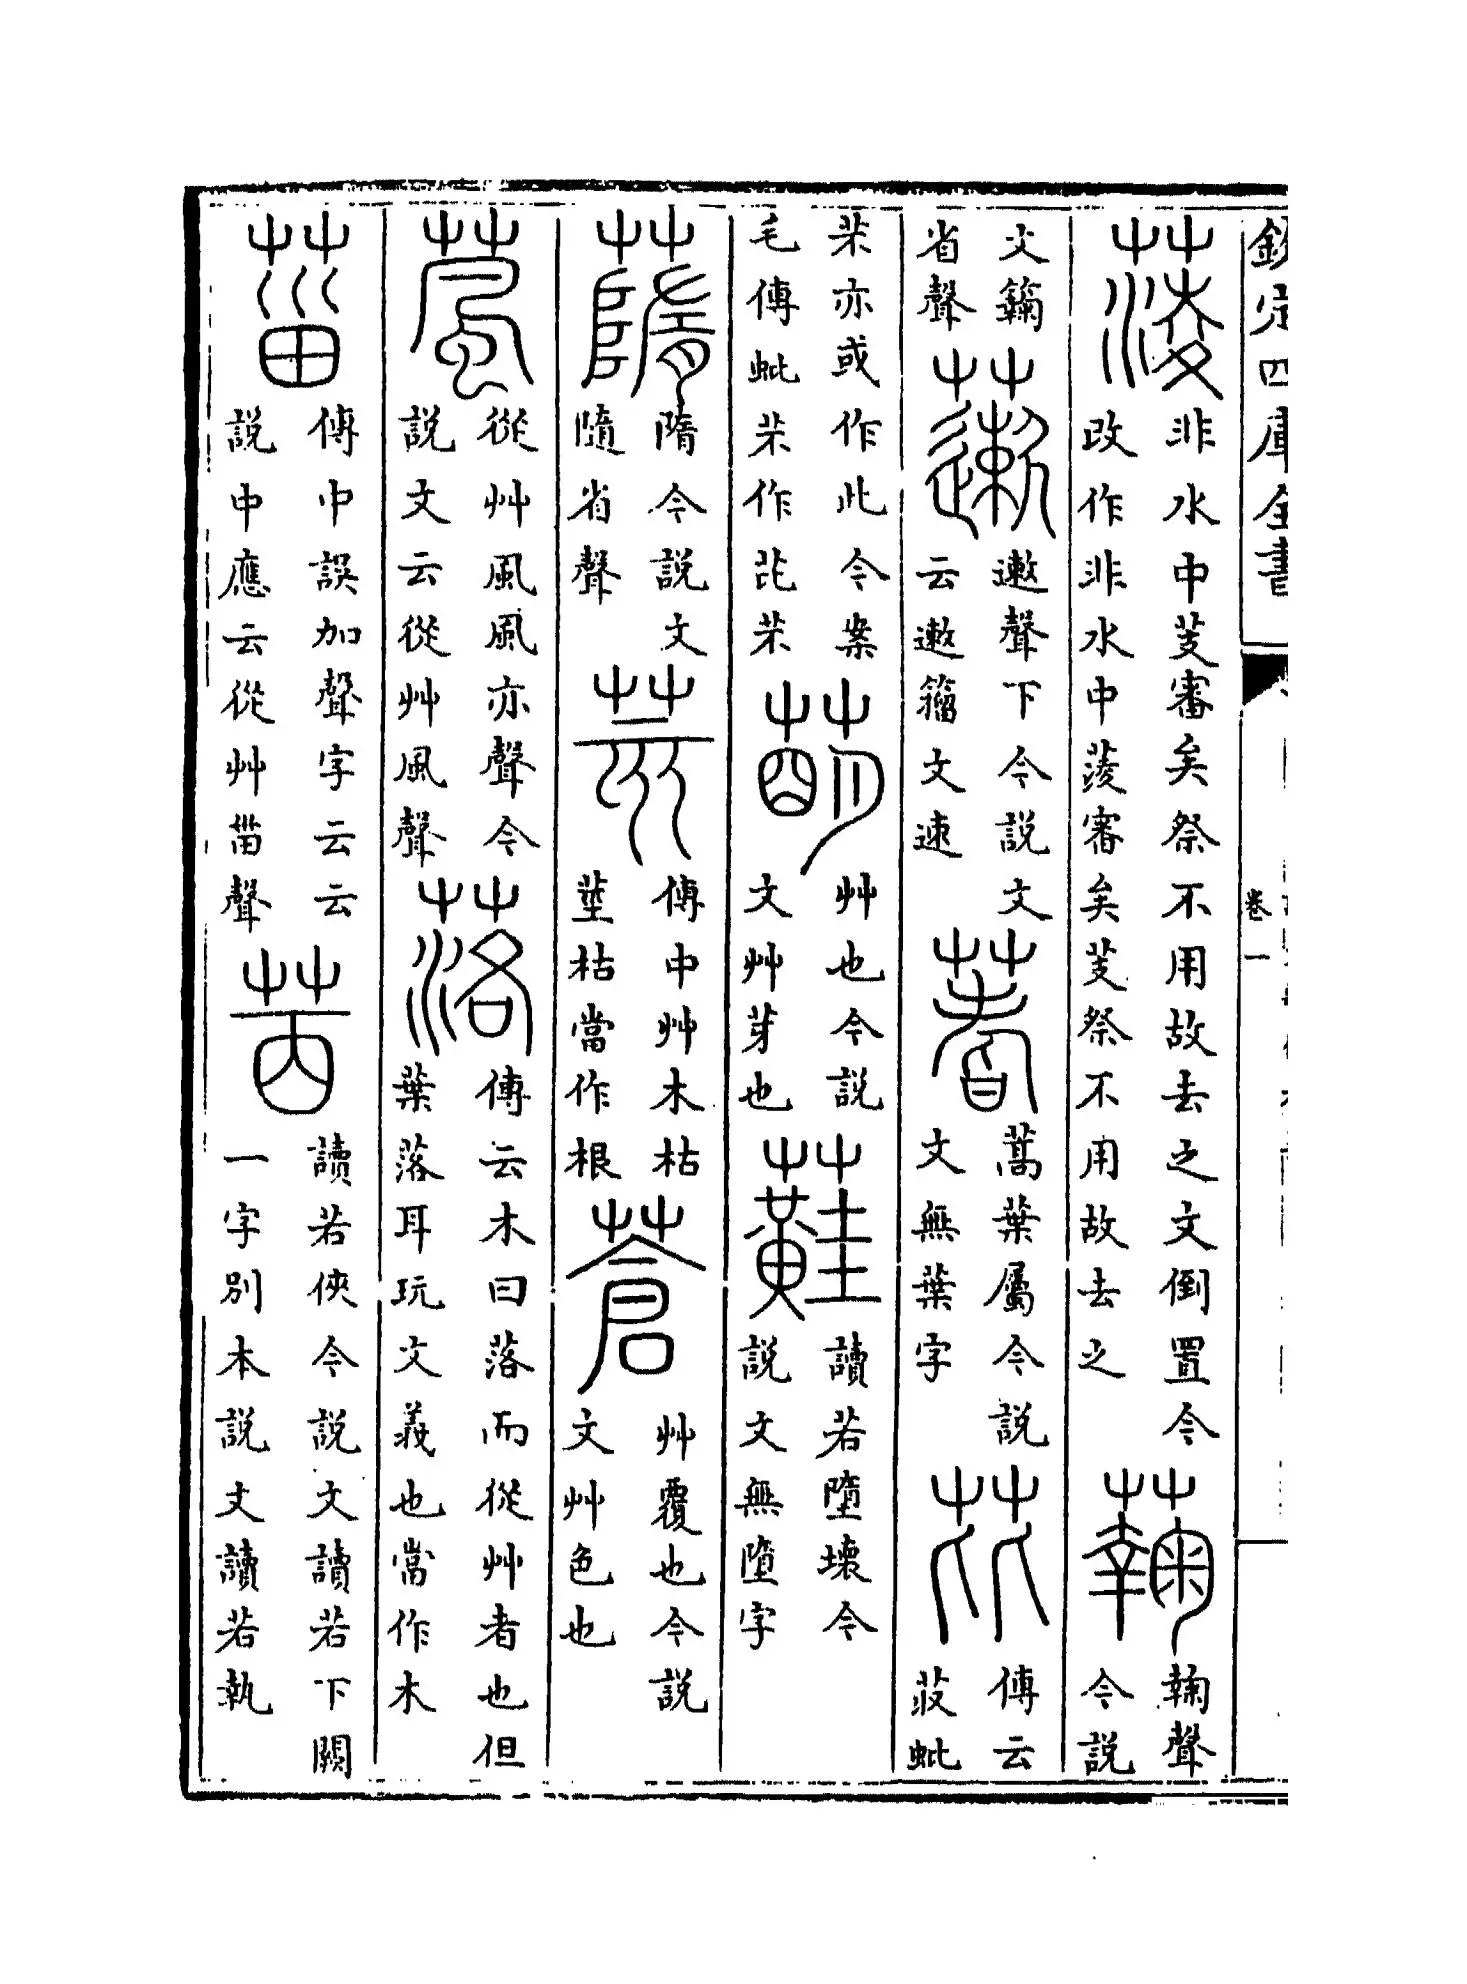 欽定四庫全書
卷一
蔆
非水中芰審矣祭不用故去之文倒置今
改作非水中蔆審矣芰祭不用故去之
聲
今說
文
省聲
藗
遬聲下今說文
云遬籀文速
蓍
蒿葉屬今說
文無葉字
芘
傳云
荍蚍
芣亦或作此今案
毛傳蚍芣作芘芣
萌
艸也今說
文艸芽也
蘳
讀若墮壞今
說文無墮字
隋今說文
隨省聲
荄
傳中艸木枯
莖枯當作根
蒼
艸覆也今說
文艸色也
葻
從艸風風亦聲今
說文云從艸風聲
落
傳云木曰落而從艸者也但
葉落耳玩文義也當作木
菑
傳中誤加聲字云云
說中應云從艸甾聲
讀若俠今說文讀若下闕
一字別本說文讀若執